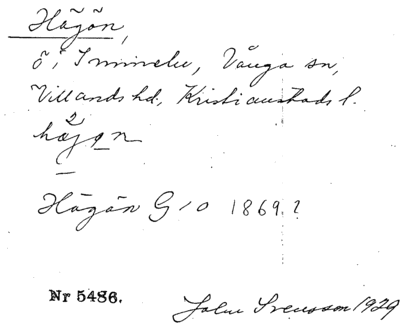 Hägön,
ö i Immeln, Vånga sn,
Villands hd, Kristianstads l.
Hägön G 10 1869.
Nr 5486.
John Svensson 1929